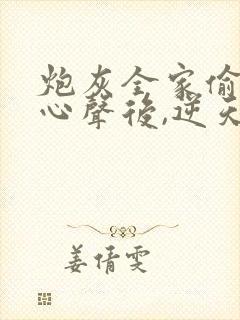 炮灰全家偷
心聲後,逆天
姜倩雯